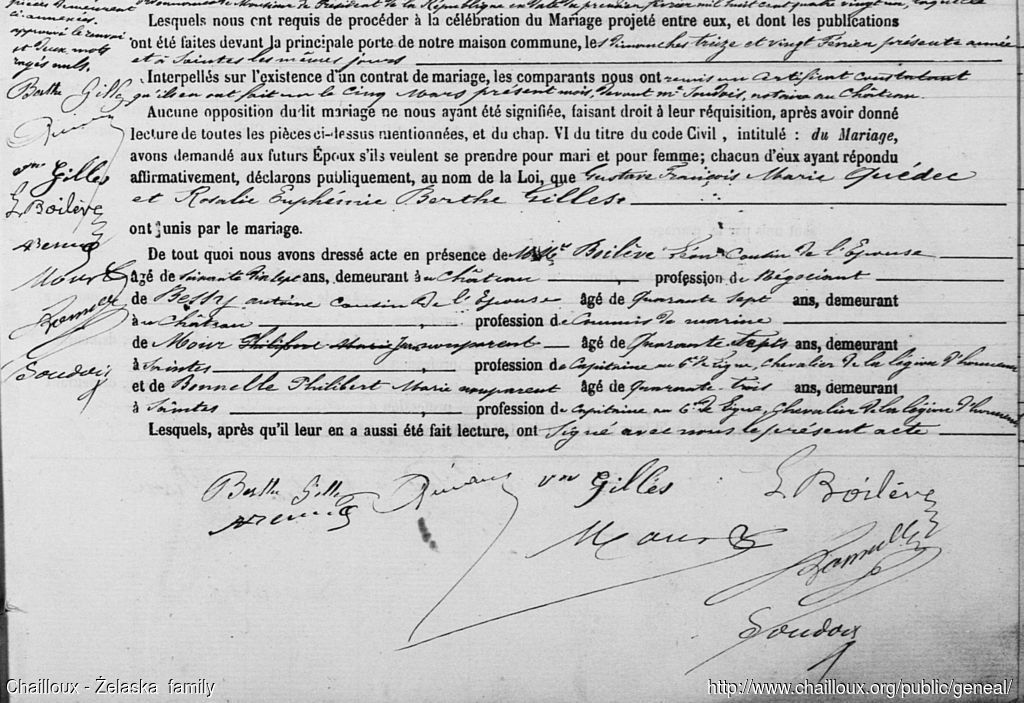 Monsieur le Président de la République en date du premier février mil huit cent quatre vingt un,
Lesquels nous ont requis de procéder à la célébration du Mariage projeté entre eux, et dont les publications
approuvé le renvoi
ont été faites devant la principale porte de notre maison commune, les dimanches treize et vingt Février présente année
et deux mots
et à Saintes les mêmes jours
rayés nuls.
Interpellés sur l'existence d'un contrat de mariage, les comparants nous ont remis un certificat constatant
Berthe Gilles
qu'ils en ont fait un le Cinq Mars présent mois, devant Me notaire au Château.
Aucune opposition du dit mariage ne nous ayant été signifiée, faisant droit à leur réquisition, après avoir donné
lecture de toutes les pièces ci-dessus mentionnées, et du chap. VI du titre du code Civil, intitulé : du Mariage,
avons demandé aux futurs Époux s'ils veulent se prendre pour mari et pour femme; chacun d'eux ayant répondu
vve Gilles
affirmativement, déclarons publiquement, au nom de la Loi, que Gustave François Marie Quédec
L Boilève
et Rosalie Euphémie Berthe Gilles
ont unis par le mariage.
De tout quoi nous avons dressé acte en présence de Boilève Léon Cousin de l'Epouse
âgé de ans, demeurant à au Château profession de Négociant
de Bessy antoine cousin de l'Epouse âgé de Quarante Sept ans, demeurant
à au Château profession de Commis de marine
de Mour non parent âgé de Quarante Sept ans, demeurant
à Saintes profession de Capitaine au 6e de Ligne, Chevalier de la légion d'honneur
et de Bonnelle Philibert Marie non parent âgé de Quarante trois ans, demeurant
à Saintes profession de Capitaine au 6e de Ligne, Chevalier de la légion d'honneur
Lesquels, après qu'il leur en a aussi été fait lecture, ont Signé avec nous le présent acte
Berthe Gilles
vve Gillès
L Boilève
Chailloux - Żelaska family
http://www.chailloux.org/public/geneal/